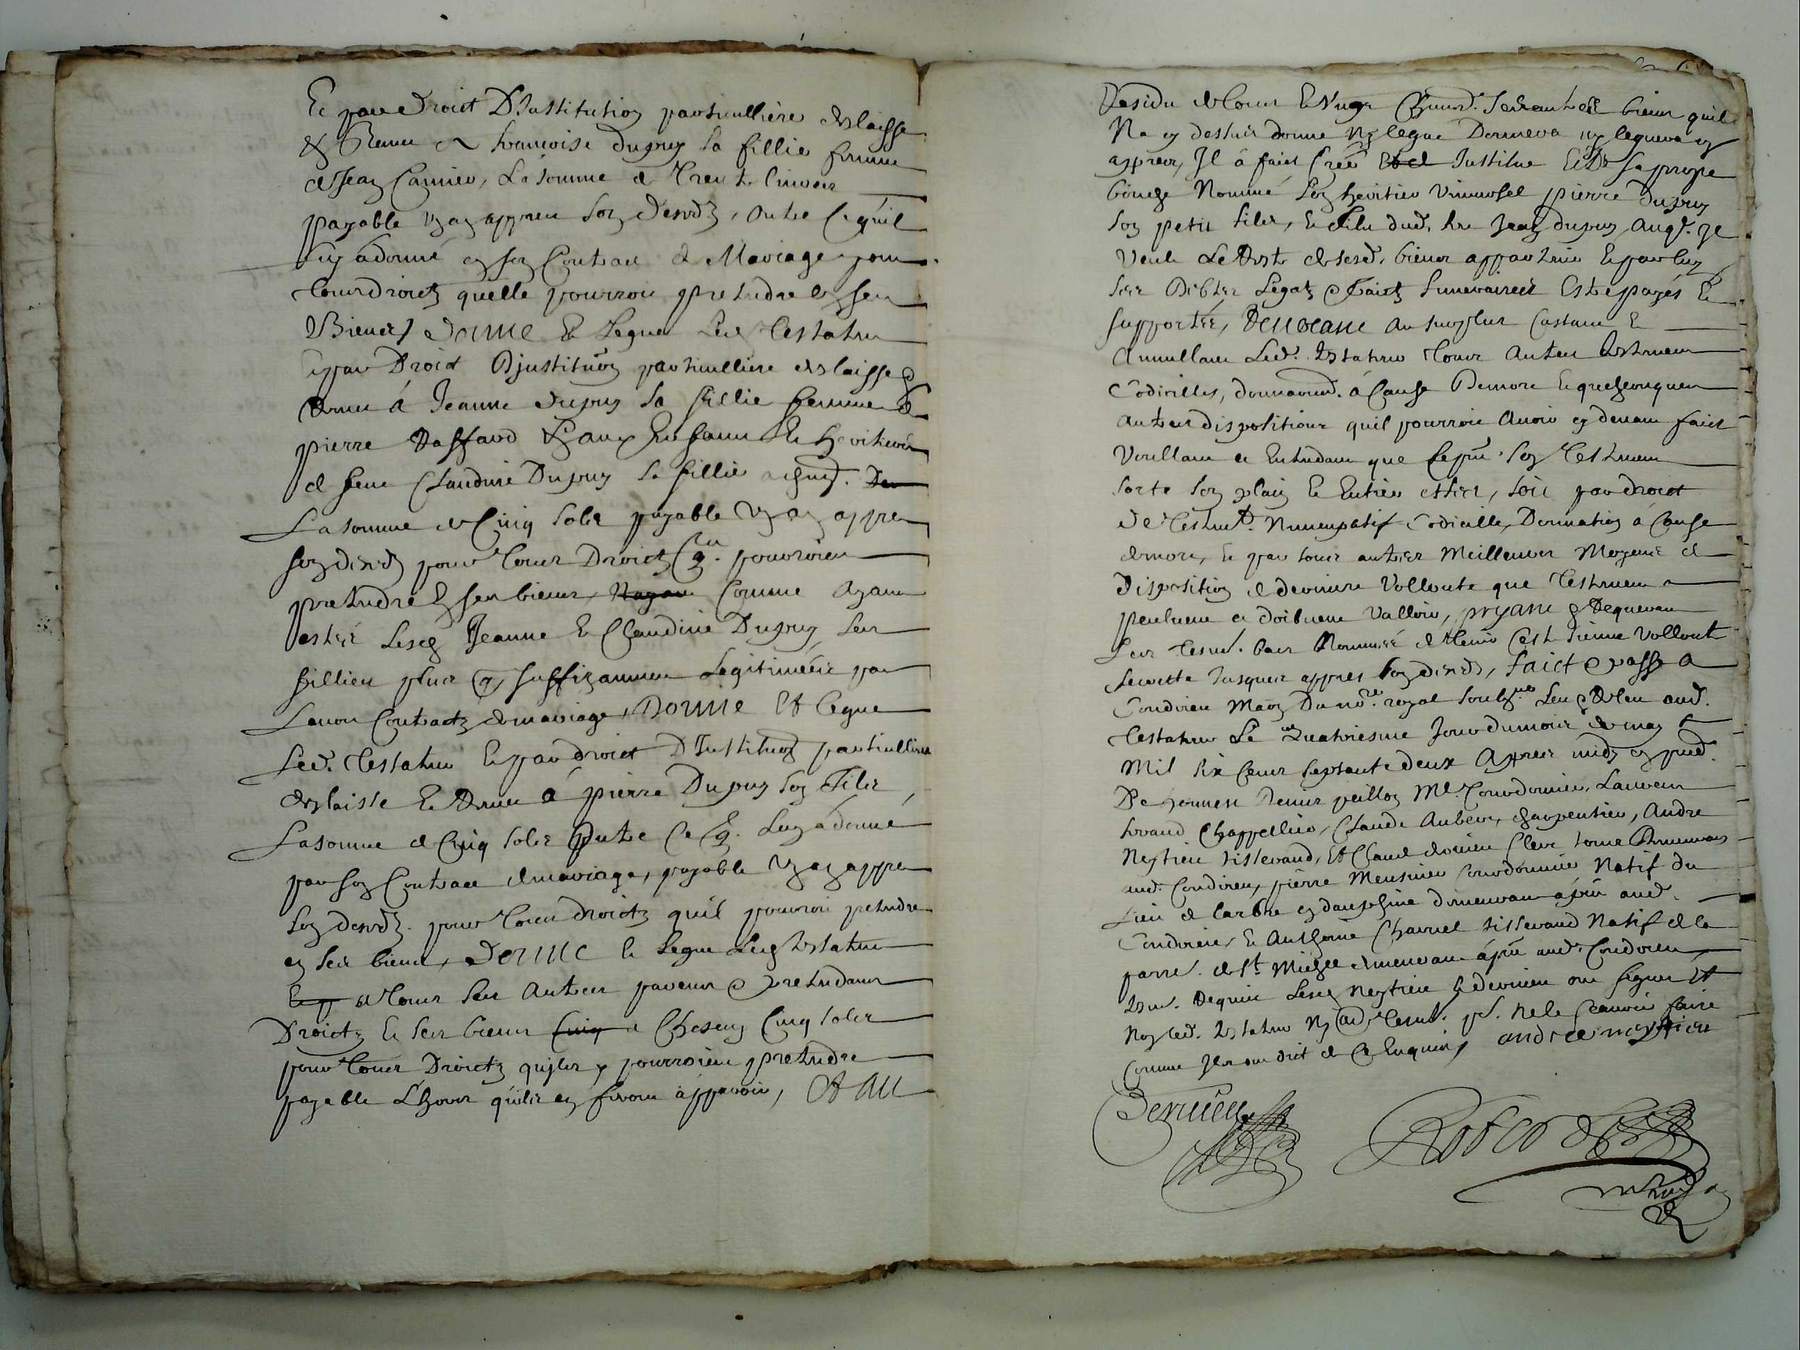 Et par droict d'Institution particulliere delaisse
& donne a francoise dupuy sa fillie femme
de Jean Camier, La somme de trente livres
payable ung an apprez son deced, outre ce quil
luy a donné en son Contract de Mariage pour
tous droictz quelle pourroit pretendre en ses
Biens, donne et legue led testateur
et par droict d'Institution particulliere delaisse et
donne á Jeanne dupuy sa fillie femme de
pierre & aux Enfans et heritiers
de feue Claudine Dupuy sa fillie
La somme de Cinq solz payable ung an apprez
son deced pour tous droictz quilz pourroient
pretendre en ses biens, Comme ayant
estés lesd Jeanne et Claudine Dupuy ses
fillies suffizamment Legitimées par
Leurs Contractz de mariage, Donne et legue
Led. testateur et par droict d'Institution particulliere
delaisse et donne a pierre Dupuy son filz
La somme de Cinq solz outre ce q. Luy a donné
par son Contract de mariage, payable ung an apprez
son deced. pour tous droictz quil pourroit pretendre
en ses biens, Donne et legue led testateur
a tous ses autres parens & pretendans
Droictz en ses biens a Chascun Cinq solz
pour tous droictz quilz y pourroient pretendre
payable Lhors quilz en feront apparoir, Et au
Residu de tous et biens quil
Na cy dessus donné ny legué Donnera ny leguera cy
apprez, Il á faict Créé et Institue et de sa propre
bouche Nommé son heritier Universel pierre dupuy
son petit filz, et filz dud. feu Jean dupuy, auq. Il
veult Le Reste de sesd. biens appartenir et par luy
ses debtes Legatz & fraictz funerairees Estre payés et
supportés, au surplus Cassant et
Annullant Led. testateur tous autres testamens
Codicilles, donnations á Cause de mort et quelconques
autres dispositions quil pourroit avoir cy devant faict
Voullant et Entendant que le pnt son testament
sorte son plain et entier effect, soit par droict
de testamt. Nuncupatif Codicille, Donnation á Cause
de mort, et par tous autres Meilleurs Moyens de
disposition de derniere Vollonté que testament
peulvent et doibvent Valloir, priant & Requerant
Les tesm. bas Nommés de tenir ceste sienne Vollonté
secrette Jusques apprez son deced, faict & passé a
Condrieu Maison Du no.re royal soubz.ne Leu & Releu aud.
testateur Le quatriesme Jour du mois de may
Mil six Cens septante deux Apprez midy en pnce.
De honnest Denis peillon Me. Courdonnier, Laurens
Chappellier, Claude Aubert, charpentier, André
Neyrieu tisserand, Et Claude dervieu Clerc tous demeurans
aud. Condrieu, pierre Meusnier Courdonnier Natif du
Lieu de larbre en dauphiné demeurant a pnt aud.
Condrieu, et Anthoine Charvet tisserand Natif de la
parre. de St. Michel demeurant á pnt aud. Condrieu,
tesm. Requis Lesd Neyrieu & dervieu ont signé Et
Non led. testateur Ny aud. tesm. p. ne le scavoir faire
Comme Ilz ont dict de ce Enquis, andre neyrieu
Dervieu